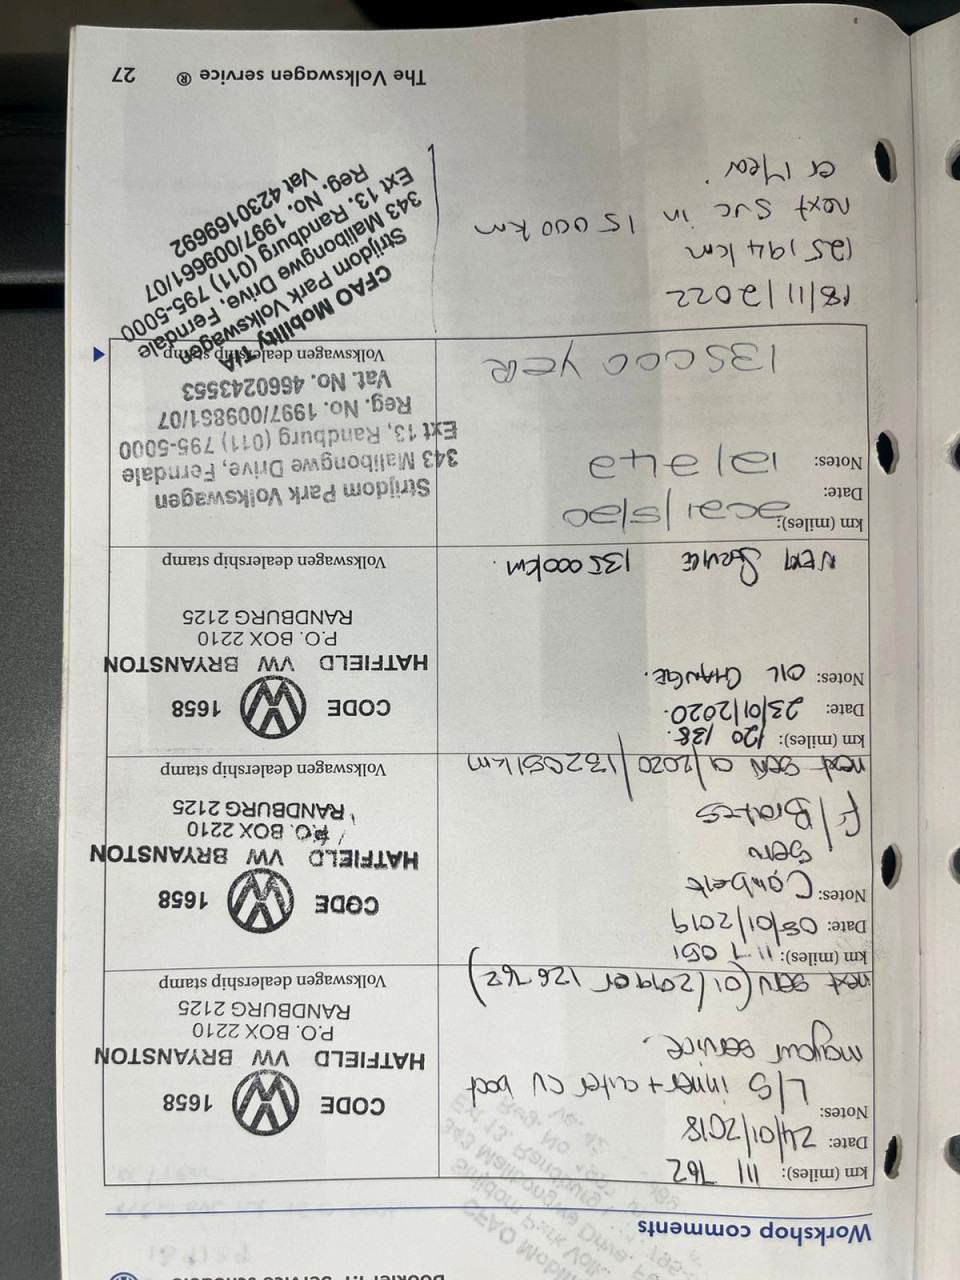 Booklet 1.1 Service schedule
Workshop comments
km (miles): 111 762
Date: 24/01/2018
Notes:
L/S inner + outer cv boot
mayour service.
next serv (01/2019 or 126 762)
CODE 1658
HATFIELD VW BRYANSTON
P.O. BOX 2210
RANDBURG 2125
Volkswagen dealership stamp
km (miles): 117 051
Date: 08/01/2019
Notes: Cambelt
serv
F/Brakes
next serv 01/2020/132051km
CODE 1658
HATFIELD VW BRYANSTON
P.O. BOX 2210
RANDBURG 2125
Volkswagen dealership stamp
km (miles): 120 138.
Date: 23/01/2020.
Notes: OIL CHANGE.
NEXT SERVICE 135000km.
CODE 1658
HATFIELD VW BRYANSTON
P.O. BOX 2210
RANDBURG 2125
Volkswagen dealership stamp
km (miles): 2021/5/20
Date:
Notes:
135000 YER
Strijdom Park Volkswagen
343 Malibongwe Drive, Ferndale
Ext 13, Randburg (011) 795-5000
Reg. No. 1997/009861/07
Vat. No. 4660243553
Volkswagen dealership stamp
18/11/2022
125194km
next svc in 15 000 km
or 1 year.
CFAO Mobility T/A
Strijdom Park Volkswagen
343 Malibongwe Drive, Ferndale
Ext 13. Randburg (011) 795-5000
Reg. No. 1997/009661/07
Vat 4230169692
The Volkswagen service ® 27